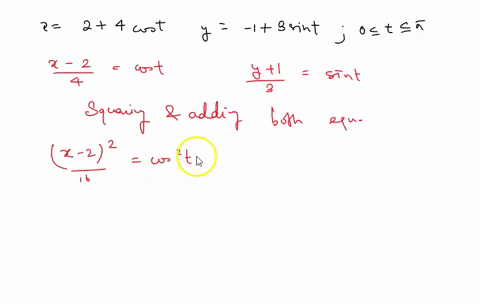 x = 2 + 4 cost y = -1 + 3 sint ; 0 ≤ t ≤ π
x - 2 / 4 = cost y + 1 / 3 = sint
Squaring & adding both equ.
(x - 2)² / 16 = cos² t